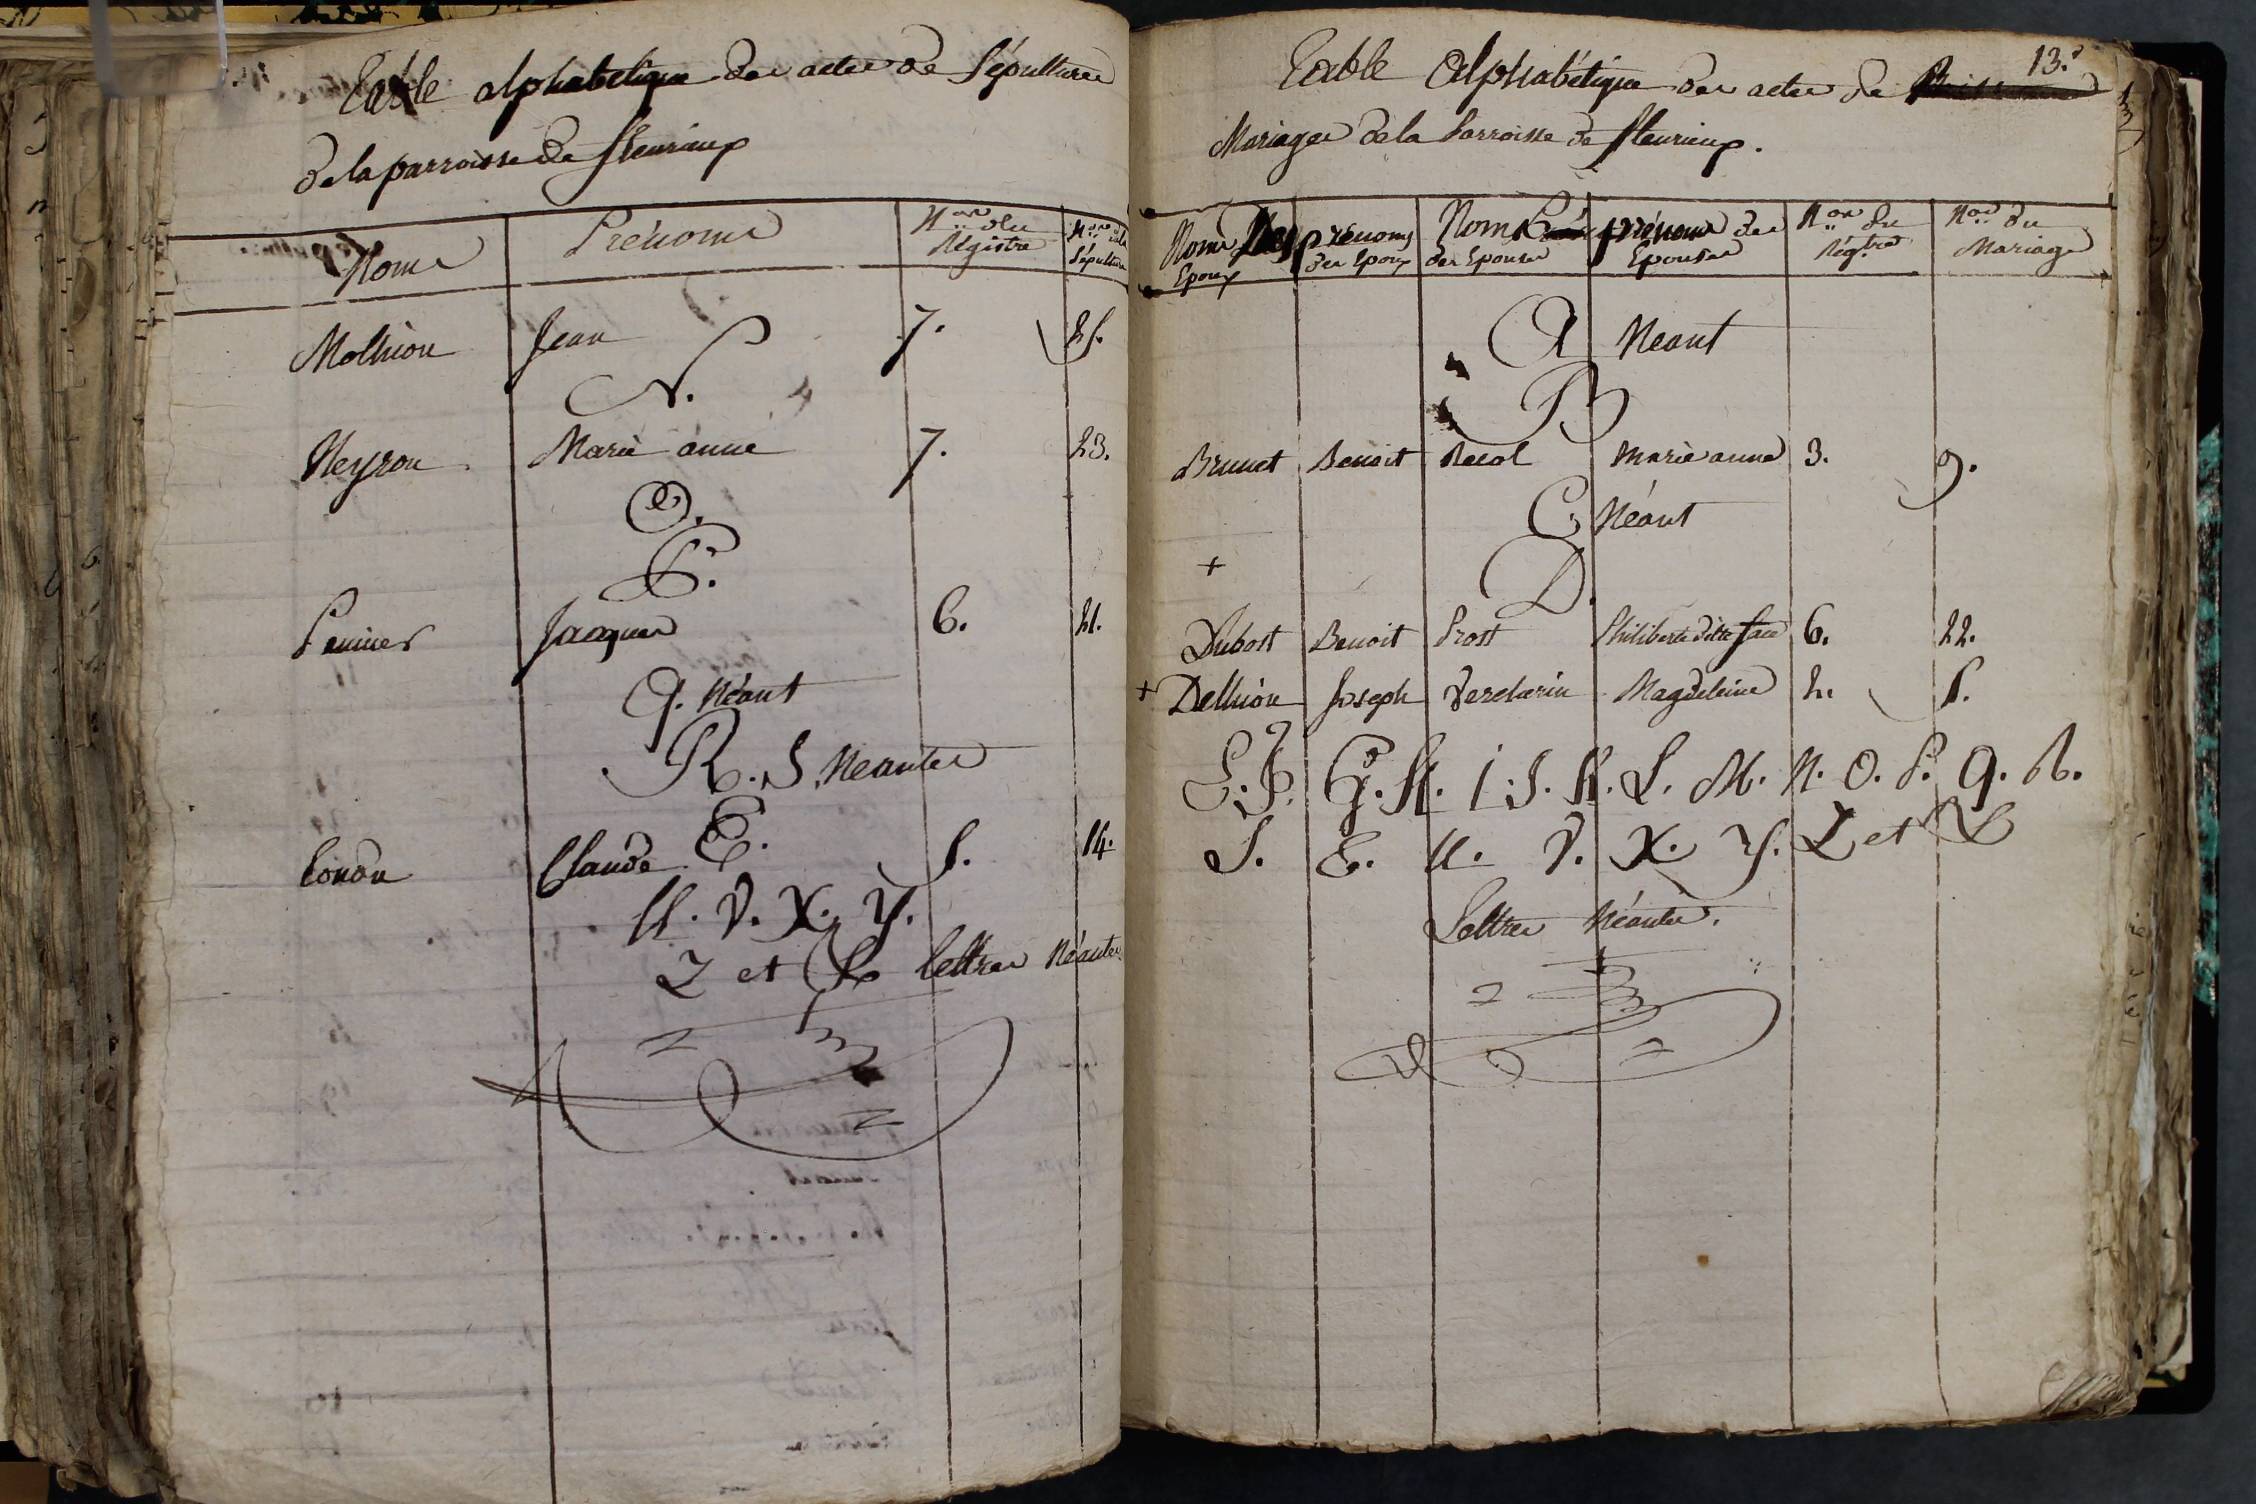 Table alphabetique des actes de Sépultures
de la parroisse de fleurieup
Noms Prénoms N.os du Régistre N.os de Sépulture
Molliion Jean 7. 25.
N.
Neyron Marie anne 7. 23.
O.
P.
Peuinet Jacques 6. 21.
Q. Néant
R. S. Neantes
T.
Tondu Claude 5. 14.
U. V. X. Y.
Z et & lettres Néantes
13.e
Table Alphabétique des actes de
Mariages de la Parroisse de fleurieup.
Noms Des Epoux prénoms des Epoux Noms des Epouses prénoms des Epouses N.os du Régtre N.os du Mariage
A Neant
B
Brunet Benoit Recol Marie anne 3. 9.
C. Néant
+
D.
Dubost Benoit Prost Philiberte ditte 6. 22.
+ Dellion Joseph Verchérin Magdeleine 2. 5.
E. F. G. H. I. J. K. L. M. N. O. P. Q. R.
S. T. U. V. X. Y. Z et &
Lettres Néantes.